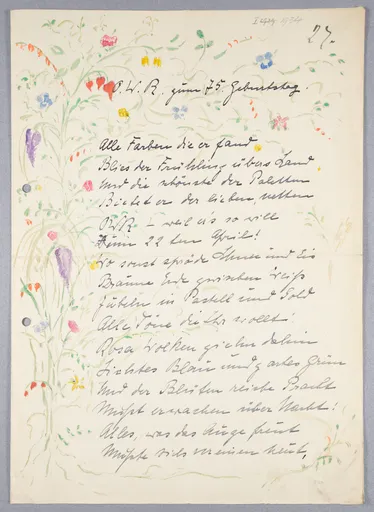 27.
O. W. R. zum 75. Geburtstag.
Alle Farben die er fand
Blies der Frühling übers Land
Und die schönste der Paletten
Bietet er der lieben netten
O.W.R. – weil er's so will
Zum 22ten April!
Wo sonst spröde Schnee und Eis
Braune Erde zwischen Weiß
Jubeln in Pastell und Gold
Alle Töne die Ihr wollt!
Rosa Wolken ziehn dahin
Lichtes Blau und zartes Grün
Und der Blüten reiche Pracht
Mußt erwachen über Nacht!
Alles, was das Auge freut
Mußte sich vereinen heut,